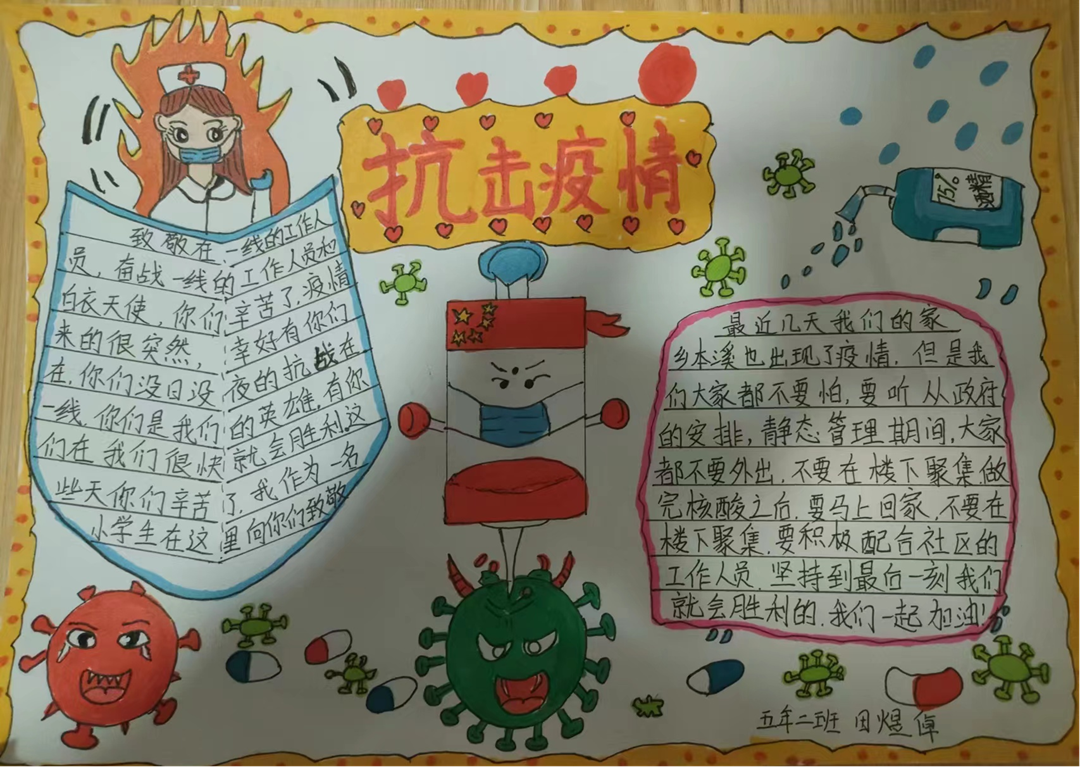 抗击疫情
致敬在一线的工作人
员，奋战一线的工作人员和
白衣天使，你们辛苦了，疫情
来的很突然，幸好有你们
在，你们没日没夜的抗战在
一线，你们是我们的英雄，有你
们在我们很快就会胜利，这
些天你们辛苦了，我作为一名
小学生在这里向你们致敬
75%酒精
最近几天我们的家
乡本溪也出现了疫情，但是我
们大家都不要怕，要听从政府
的安排，静态管理期间，大家
都不要外出，不要在楼下聚集做
完核酸之后，要马上回家，不要在
楼下聚集，要积极配合社区的
工作人员，坚持到最后一刻我们
就会胜利的，我们一起加油！
五年二班 田煜倬